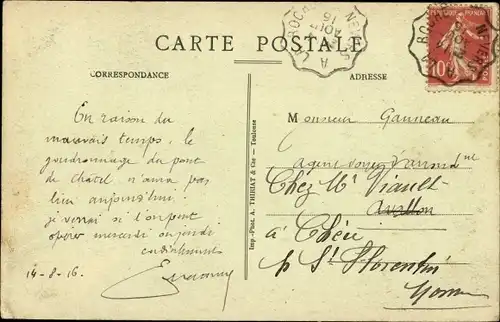 CARTE POSTALE
CORRESPONDANCE
ADRESSE
En raison du
mauvais temps, le
goudronnage du pont
de Chatel n'aura pas
lieu aujourd'hui
je verrai si l'on peut
opérer mercredi ou jeudi
cordialement
14-8-16.
Imp.-Phot. A. THIRIAT & Cie - Toulouse
Monsieur Ganneau
agent voyer d'arrond.
Chez Mr Viault
Avallon
à Chéu
p St Florentin
Yonne
10
NEVERS
AOUT
16